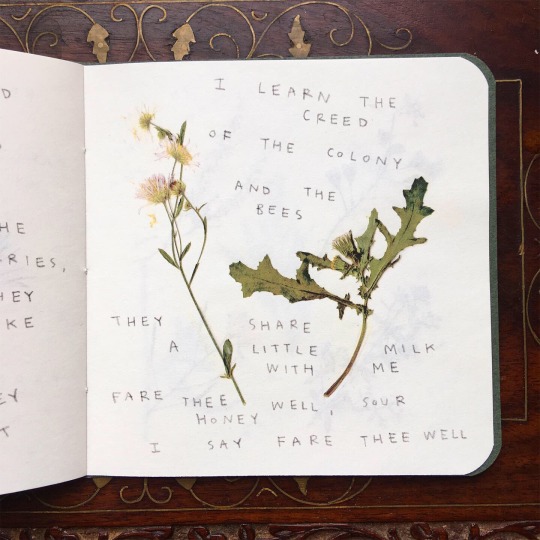 D
HE
RIES,
HEY
KE
EY
T
I LEARN THE
CREED
OF THE COLONY
AND THE
BEES
THEY SHARE
A LITTLE MILK
WITH ME
FARE THEE WELL, SOUR
HONEY
I SAY FARE THEE WELL